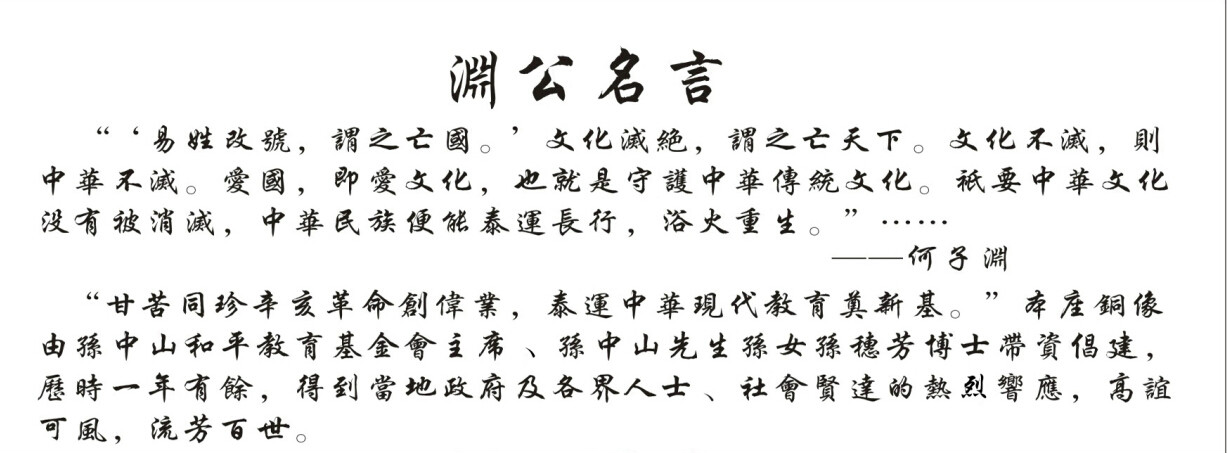 淵公名言
“‘易姓改號，謂之亡國。’文化滅絶，謂之亡天下。文化不滅，則
中華不滅。愛國，即愛文化，也就是守護中華傳統文化。祇要中華文化
没有被消滅，中華民族便能泰運長行，浴火重生。”……
——何子淵
“甘苦同珍辛亥革命創偉業，泰運中華現代教育奠新基。”本座銅像
由孫中山和平教育基金會主席、孫中山先生孫女孫穗芳博士帶資倡建，
歷時一年有餘，得到當地政府及各界人士、社會賢達的熱烈響應，高誼
可風，流芳百世。